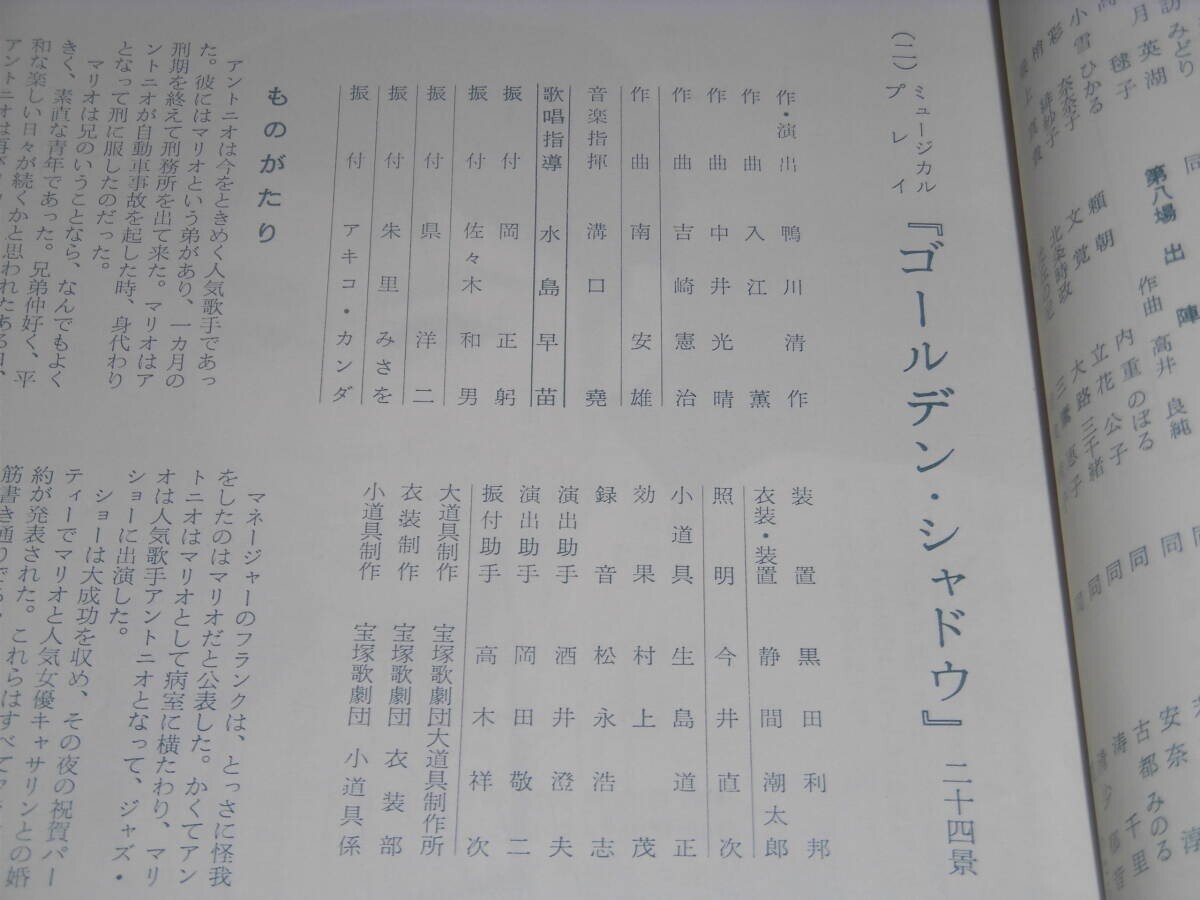 訪みどり
月英湖
毬子
小雪ひかる
奈奈子
緋紗子
同
第八場 出陣
作曲 高井良純
頼朝
文覚
北条時政
内重のぼる
立花公子
大路三千緒
同
同
同
同
安奈
古都みのる
千里
(二) ミュージカルプレイ 『ゴールデン・シャドウ』 二十四景
作・演出 鴨川清作
作曲 入江薫
作曲 中井光晴
作曲 吉崎憲治
作曲 南安雄
音楽指揮 溝口堯
歌唱指導 水島早苗
振付 岡正躬
振付 佐々木和男
振付 県洋二
振付 朱里みさを
振付 アキコ・カンダ
装置 黒田利邦
衣装・装置 静間潮太郎
照明 今井直次
小道具 生島道正
効果 村上茂
録音 松永浩志
演出助手 酒井澄夫
演出助手 岡田敬二
振付助手 高木祥次
大道具制作 宝塚歌劇団大道具制作所
衣装制作 宝塚歌劇団衣装部
小道具制作 宝塚歌劇団小道具係
ものがたり
アントニオは今をときめく人気歌手であっ
た。彼にはマリオという弟があり、一カ月の
刑期を終えて刑務所を出て来た。マリオはア
ントニオが自動車事故を起した時、身代わり
となって刑に服したのだった。
マリオは兄のいうことなら、なんでもよく
きく、素直な青年であった。兄弟仲好く、平
和な楽しい日々が続くかと思われたある日、
アントニオは再び
マネージャーのフランクは、とっさに怪我
をしたのはマリオだと公表した。かくてアン
トニオはマリオとして病室に横たわり、マリ
オは人気歌手アントニオとなって、ジャズ・
ショーに出演した。
ショーは大成功を収め、その夜の祝賀パー
ティーでマリオと人気女優キャサリンとの婚
約が発表された。これらはすべて
筋書き通り